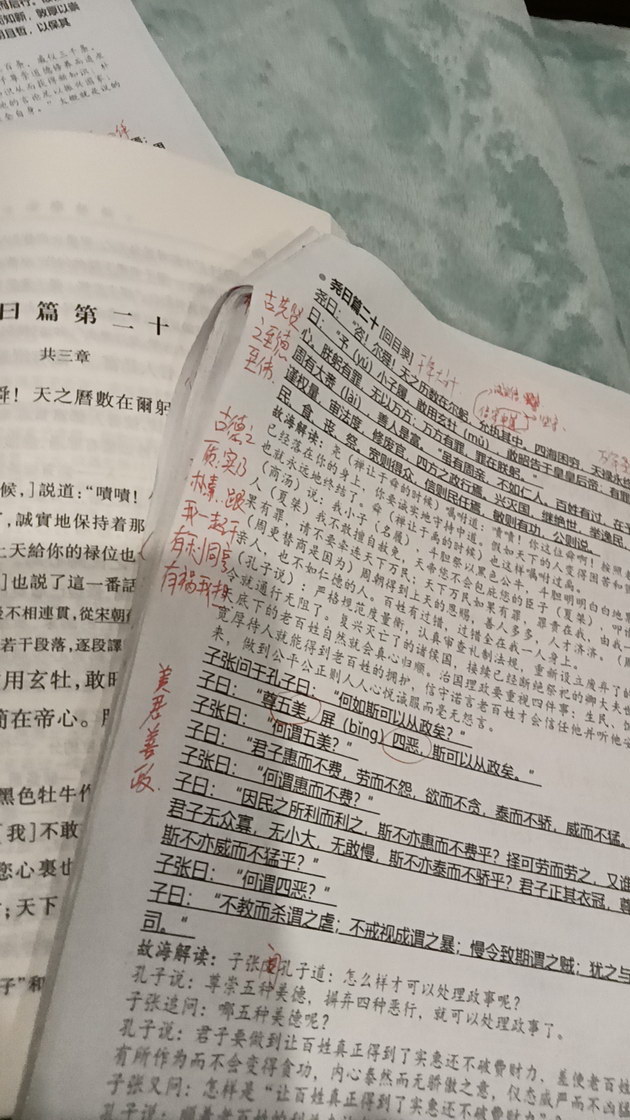 而知新，敦厚以崇
明且哲，以保其
曰篇第二十
共三章
舜！天之曆數在爾躬
候，]説道：“嘖嘖！
了，誠實地保持着那
上天給你的禄位也
]也説了這一番話
不相連貫，從宋朝
若干段落，逐段譯
用玄牡，敢昭
簡在帝心。
黑色牡牛作
[我]不敢
您心裏也
；天下
子”和
尧曰篇二十 [回目录]
尧曰：“咨！尔舜！天之历数在尔躬，允执其中，四海困穷，天禄永终
曰：“予（yú）小子履，敢用玄牡（mǔ），敢昭告于皇皇后帝：有罪
心。朕躬有罪，无以万方；万方有罪，罪在朕躬。”
周有大赉（lài），善人是富。“虽有周亲，不如仁人。百姓有过，在予
谨权量，审法度，修废官，四方之政行焉。兴灭国，继绝世，举逸民，
民、食、丧、祭。宽则得众，信则民任焉，敏则有功，公则说。
故海解读：尧（禅让于舜的时候）嘱咐道：啧啧！你这位舜啊！按照
已经落在你的身上，你要诚实地守持中道。假如天下的人变得困苦和
也就永远地终结了。舜（禅让于禹的时候）也这样嘱咐过禹。
（商汤）说：我小子（名履），斗胆祭以黑色公牛，斗胆明明白白地
人（夏桀）我不敢擅自赦免，天帝您不会包庇您的臣子（夏桀），
果有罪，请不要牵连天下万民；天下万民如果有罪，罪责在我，由我一
（周更替商是因为）周朝得到上天的恩赐，善人多多，人才济济。
亲人，也不如仁德的人。百姓有过错，过错全在我一人身上。
（孔子说）：严格规范度量衡，认真审查礼制法规，重新设立废弃了的
令就通行无阻了。复兴灭亡了的诸侯国，接续已经断绝祭祀的卿大夫世
底下的老百姓自然就会真心归顺。治国理政要重视四件事：生民、
宽厚待人就能得到老百姓的拥护，信守诺言老百姓才会信任他并听他
来，做到公平公正则人人心悦诚服而毫无怨言。
子张问于孔子曰：“何如斯可以从政矣？”
子曰：“尊五美，屏（bǐng）四恶，斯可以从政矣。”
子张曰：“何谓五美？”
子曰：“君子惠而不费，劳而不怨，欲而不贪，泰而不骄，威而不猛。
子张曰：“何谓惠而不费？”
子曰：“因民之所利而利之，斯不亦惠而不费乎？择可劳而劳之，又谁
君子无众寡，无小大，无敢慢，斯不亦泰而不骄乎？君子正其衣冠，尊
斯不亦威而不猛乎？”
子张曰：“何谓四恶？”
子曰：“不教而杀谓之虐；不戒视成谓之暴；慢令致期谓之贼；犹之与
司。”
故海解读：子张问孔子道：怎么样才可以处理政事呢？
孔子说：尊崇五种美德，摒弃四种恶行，就可以处理政事了。
子张追问：哪五种美德呢？
孔子说：君子要做到让百姓真正得到了实惠还不破费财力，差使老百姓
有所作为而不会变得贪功，内心泰然而无骄傲之意，仪态威严而不凶猛
子张又问：怎样是“让百姓真正得到了实惠还不破费财力
孔子说：顺着老百姓的利益
古先贤
之至德
至伟
古德之
质实
朴素
跟
我一起干
有利同享
有祸我担
美君善政